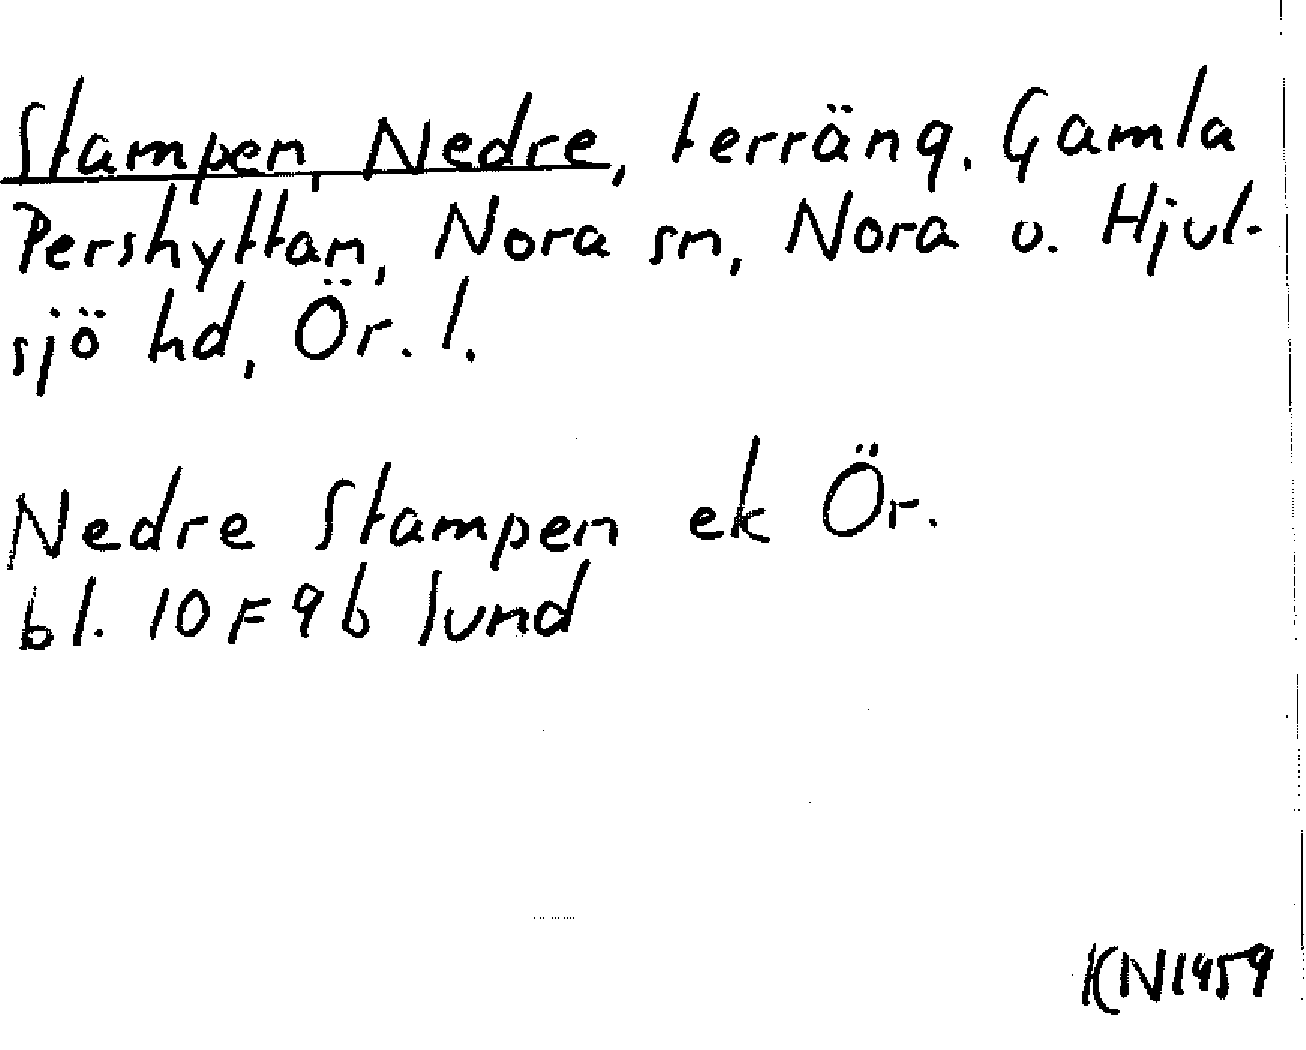 Stampen, Nedre, terräng. Gamla
Pershyttan, Nora sn, Nora o. Hjul-
sjö hd, Ör. l.
Nedre Stampen ek Ör.
bl. 10F9b lund
KN1959